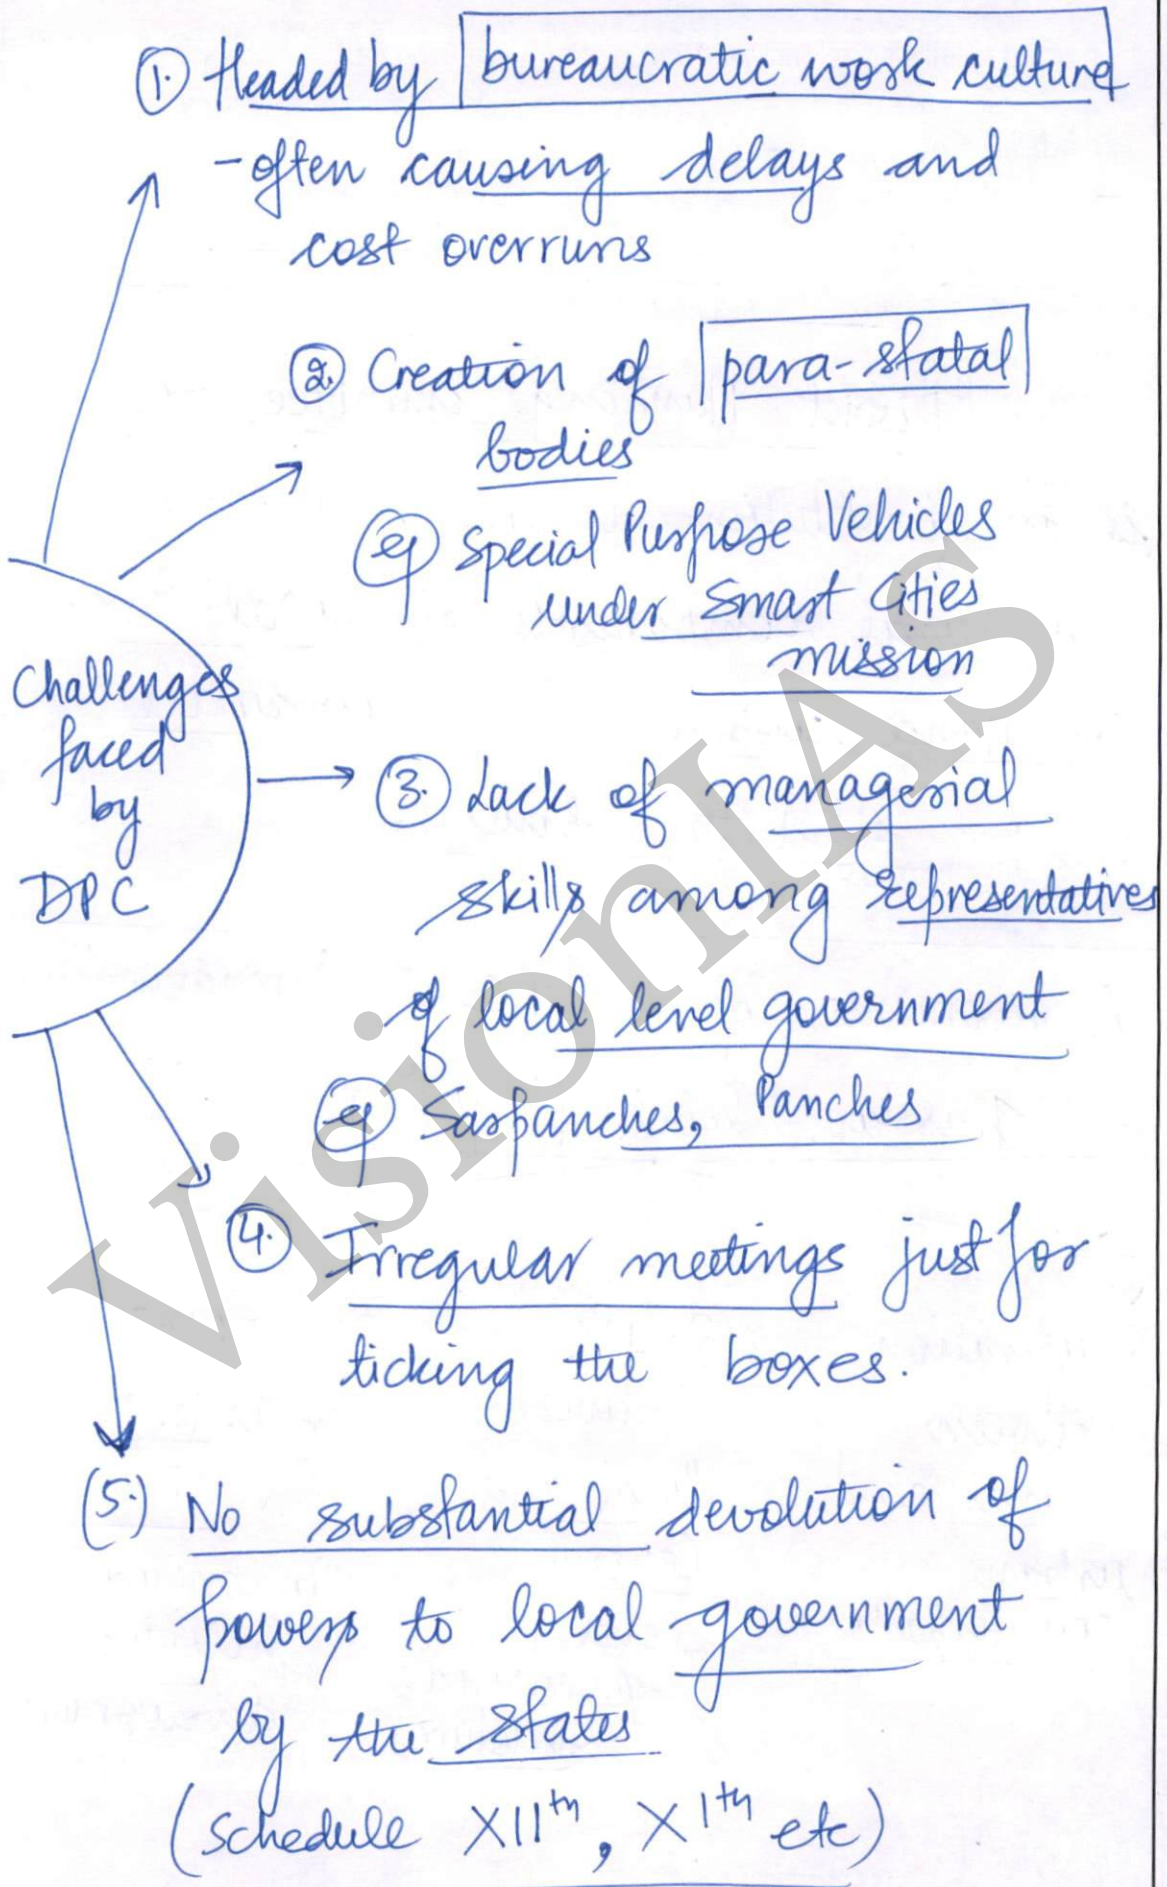 1. Headed by bureaucratic work culture
- often causing delays and
cost overruns
2. Creation of para-statal
bodies
eg Special Purpose Vehicles
under Smart Cities
mission
Challenges
faced
by
DPC
3. Lack of managerial
skills among representatives
of local level government
eg Sarpanches, Panches
4. Irregular meetings just for
ticking the boxes.
(5.) No substantial devolution of
powers to local government
by the states
(Schedule XIIth, XIth etc)
VisionIAS